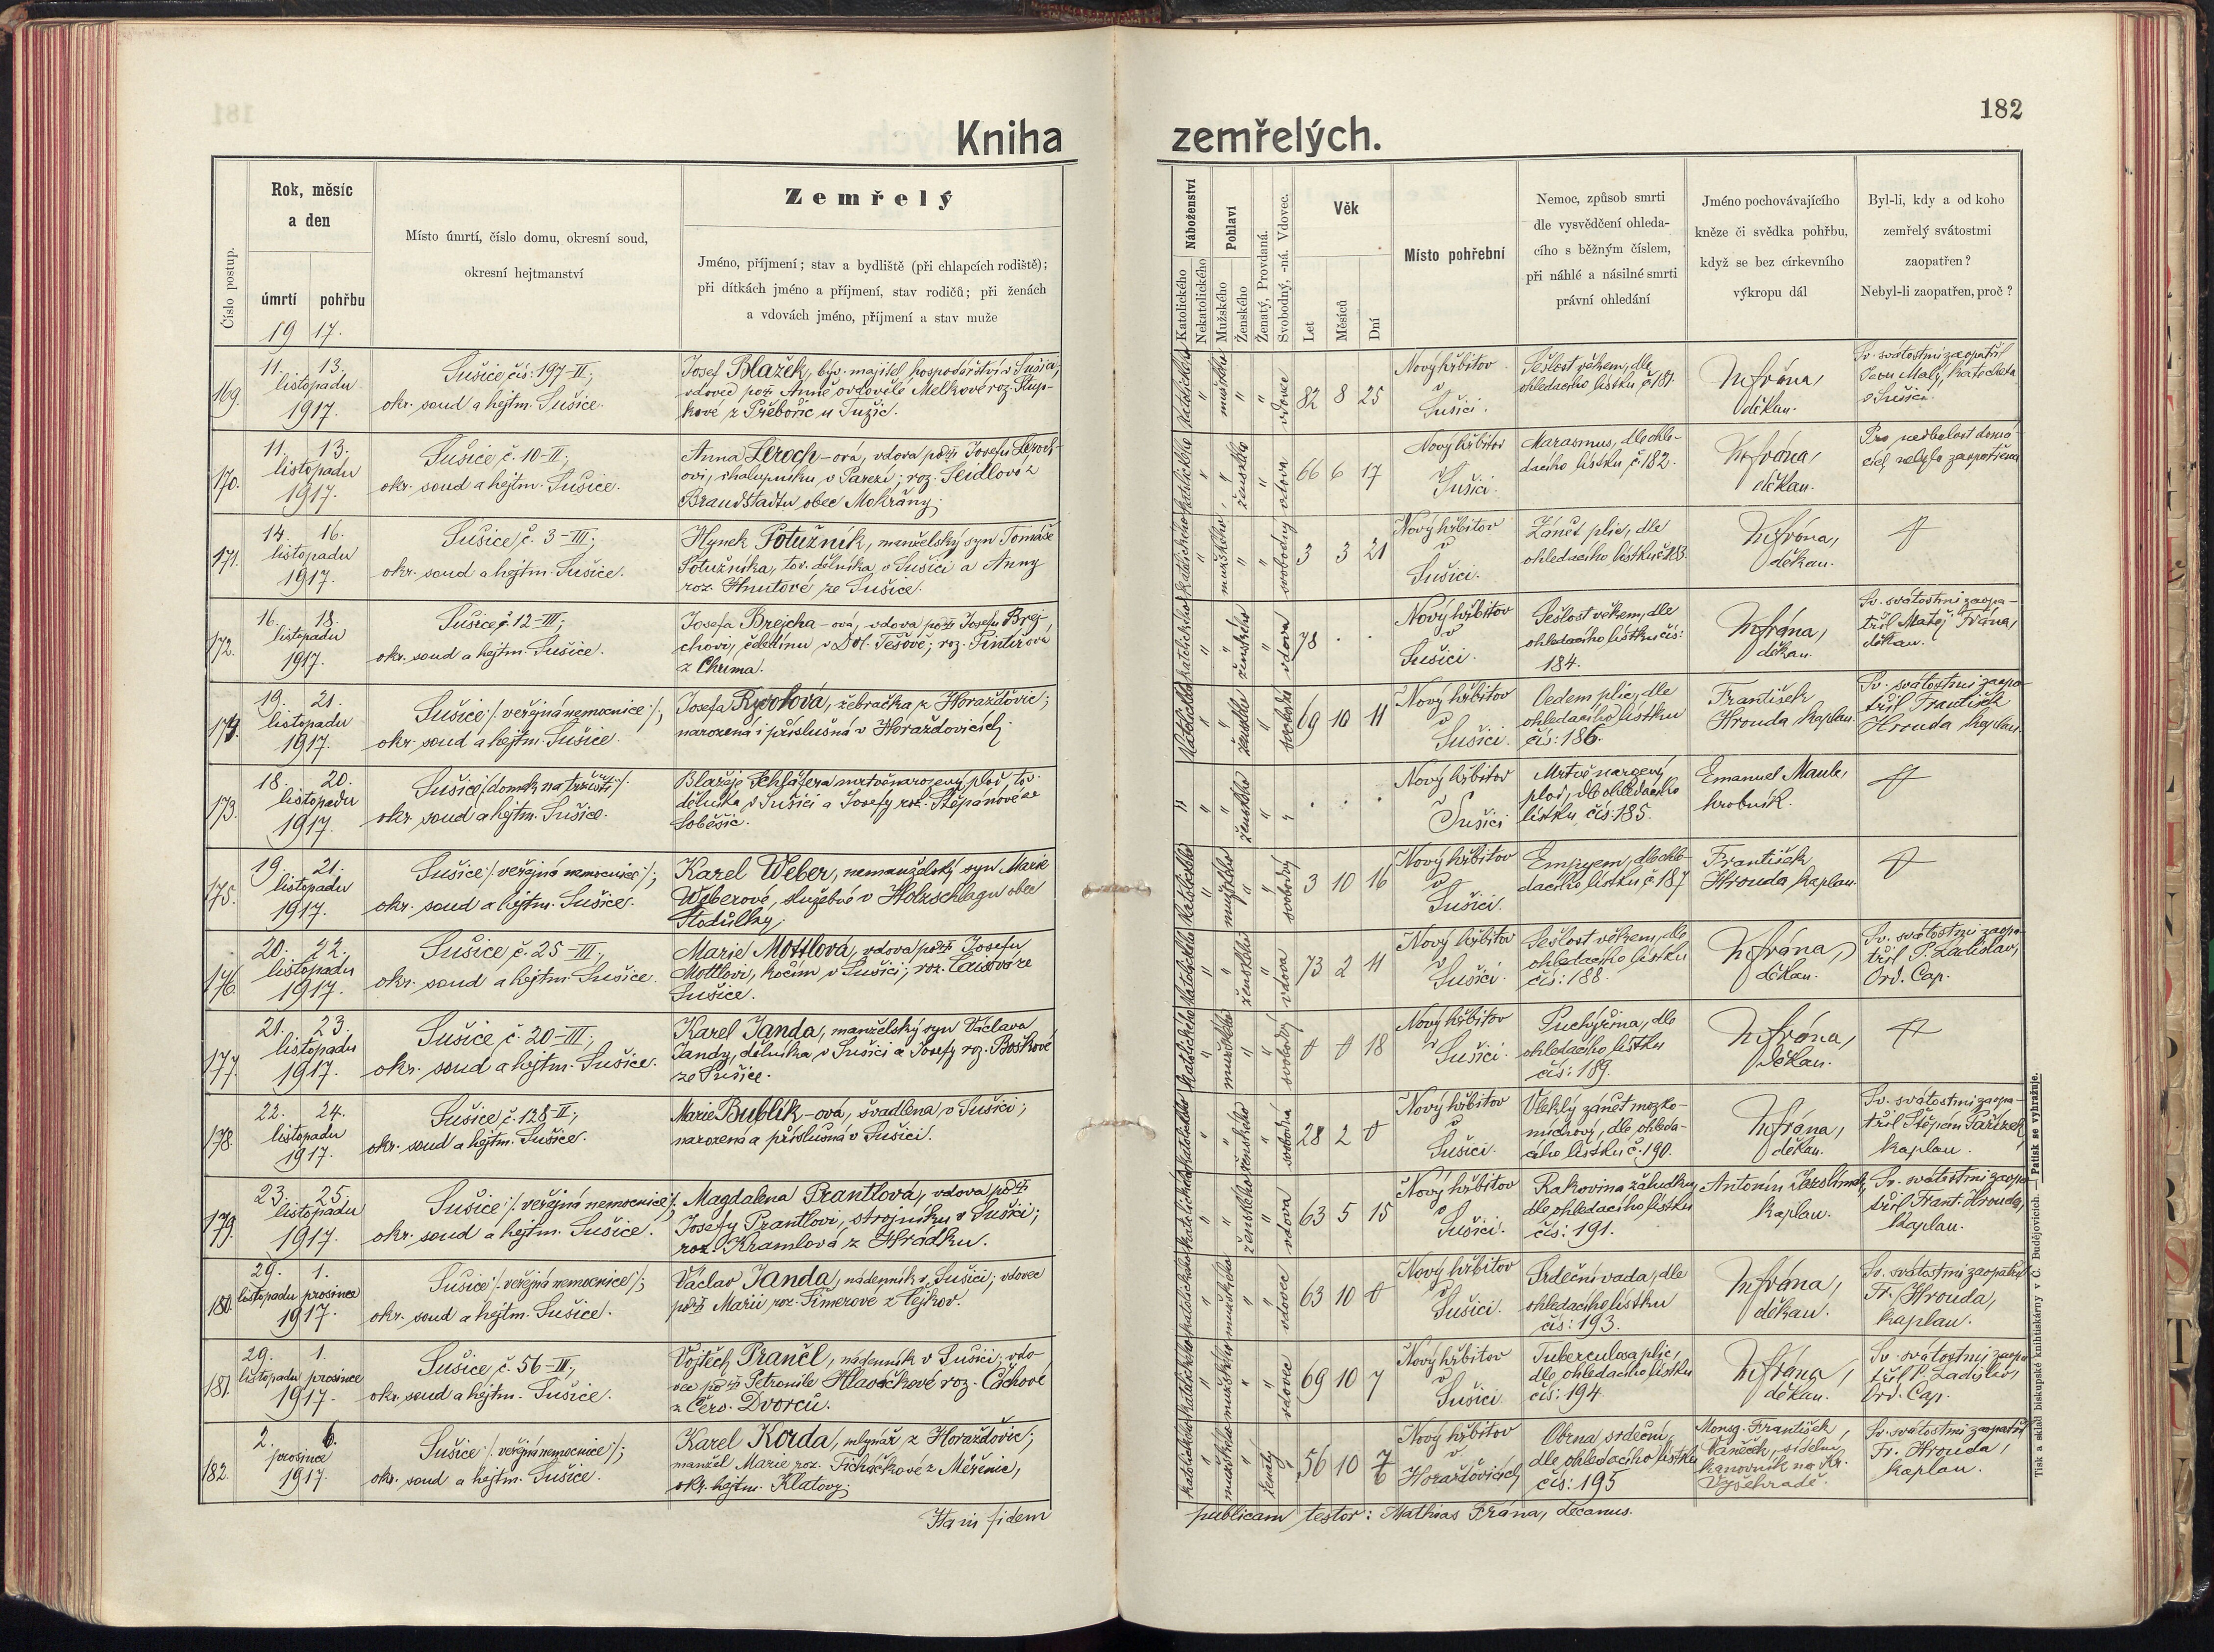 182
Kniha zemřelých.
Číslo postup.
Rok, měsíc
a den
úmrtí pohřbu
19 17.
Místo úmrtí, číslo domu, okresní soud,
okresní hejtmanství
Zemřelý
Jméno, příjmení; stav a bydliště (při chlapcích rodiště);
při dítkách jméno a příjmení, stav rodičů; při ženách
a vdovách jméno, příjmení a stav muže
Náboženství
Katolického
Nekatolického
Pohlaví
Mužského
Ženského
Ženatý, Provdaná.
Svobodný, -ná. Vdovec.
Věk
Let
Měsíců
Dní
Místo pohřební
Nemoc, způsob smrti
dle vysvědčení ohleda-
cího s běžným číslem,
při náhlé a násilné smrti
právní ohledání
Jméno pochovávajícího
kněze či svědka pohřbu,
když se bez církevního
výkropu dál
Byl-li, kdy a od koho
zemřelý svátostmi
zaopatřen?
Nebyl-li zaopatřen, proč?
169. 11. 13.
listopadu
1917.
Sušice, čís: 197-II;
okr. soud a hejtm. Sušice.
Josef Blažek, býv. majitel hospodářství v Sušici,
vdovec poz. Anně ovdovělé Melkové roz.
kové z Přebořic u Tužic.
katolického mužského vdovec 82 8 25
Nový hřbitov
v
Sušici.
Sešlost věkem, dle
ohledacího lístku č. 181.
M Frána,
děkan.
Sv. svátostmi zaopatřil
Jan Malý, katecheta
v Sušici.
170. 11. 13.
listopadu
1917.
Sušice, č. 10-II;
okr. soud a hejtm. Sušice.
Anna Leroch-ová, vdova po Josefu Leroch-
ovi, chalupníku v Pařezí; roz. Seidlová z
Brandstadtu obec Mokřany.
katolického ženského vdova 66 6 17
Nový hřbitov
v
Sušici.
Marasmus, dle ohle-
dacího lístku č. 182.
M Frána,
děkan.
Pro nedbalost domá-
cích nebyla zaopatřena
171. 14. 16.
listopadu
1917.
Sušice, č. 3-III;
okr. soud a hejtm. Sušice.
Hynek Potužník, manželský syn Tomáše
Potužníka, tov. dělníka v Sušici a Anny
roz. Hnutové ze Sušice.
katolického mužského svobodný 3 3 21
Nový hřbitov
v
Sušici.
Zánět plic, dle
ohledacího lístku č. 183.
M Frána,
děkan.
172. 16. 18.
listopadu
1917.
Sušice, č. 12-III;
okr. soud a hejtm. Sušice.
Josefa Brejcha-ová, vdova po Josefu Brej-
chovi, čeledínu v Dol. Těšově; roz. Pintířová
z Chuma.
katolického ženského vdova 78 . .
Nový hřbitov
v
Sušici.
Sešlost věkem, dle
ohledacího lístku čís:
184.
M Frána,
děkan.
Sv. svátostmi zaopa-
třil Matěj Frána,
děkan.
174. 19. 21.
listopadu
1917.
Sušice /: veřejná nemocnice :/;
okr. soud a hejtm. Sušice.
Josefa Ryvolová, žebračka z Horažďovic;
narozená i příslušná v Horažďovicích.
katolického ženského svobodná 69 10 11
Nový hřbitov
v
Sušici.
Oedem plic, dle
ohledacího lístku
čís: 186.
František
Hrouda kaplan.
Sv. svátostmi zaopa-
třil František
Hrouda kaplan.
173. 18. 20.
listopadu
1917.
Sušice /: domek na tržišti :/.
okr. soud a hejtm. Sušice.
Blažeje Schläfera mrtvěnarozený plod tov.
dělníka v Sušici a Josefy roz. Štěpánové ze
Soběšic.
" ženského . . .
Nový hřbitov
v
Sušici
Mrtvě narozený
plod, dle ohledacího
lístku čís: 185.
Emanuel Maule,
hrobník.
175. 19. 21.
listopadu
1917.
Sušice /: veřejná nemocnice :/;
okr. soud a hejtm. Sušice.
Karel Weber, nemanželský syn Marie
Weberové, služebné v Holzschlagu obec
Stodůlky.
katolického mužského svobodný 3 10 16
Nový hřbitov
v
Sušici.
Empyem, dle ohle-
dacího lístku č. 187
František
Hrouda kaplan.
176. 20. 22.
listopadu
1917.
Sušice, č. 25-III;
okr. soud a hejtm. Sušice.
Marie Mottlová, vdova po Josefu
Mottlovi, kočím v Sušici; roz. Laisová ze
Sušice.
katolického ženského vdova 73 2 11
Nový hřbitov
v
Sušici.
Sešlost věkem, dle
ohledacího lístku
čís: 188.
M Frána,
děkan.
Sv. svátostmi zaopa-
třil P. Ladislav,
Ord. Cap.
177. 21. 23.
listopadu
1917.
Sušice č. 20-III;
okr. soud a hejtm. Sušice.
Karel Janda, manželský syn Václava
Jandy, dělníka v Sušici a Josefy roz. Boškové
ze Sušice.
katolického mužského svobodný 0 0 18
Nový hřbitov
v Sušici.
Puchýřina, dle
ohledacího lístku
čís: 189.
M Frána,
děkan.
178. 22. 24.
listopadu
1917.
Sušice, č. 128-II;
okr. soud a hejtm. Sušice.
Marie Bublík-ová, švadlena v Sušici;
narozena a příslušná v Sušici.
katolického ženského svobodná 28 2 0
Nový hřbitov
v
Sušici.
Vleklý zánět mozko-
míchový, dle ohleda-
cího lístku č. 190.
M Frána,
děkan.
Sv. svátostmi zaopa-
třil Štěpán Pařízek,
kaplan.
179. 23. 25.
listopadu
1917.
Sušice /: veřejná nemocnice :/;
okr. soud a hejtm. Sušice.
Magdalena Prantlová, vdova po
Josefu Prantlovi, strojníku v Sušici;
roz. Kramlová z Hrádku.
katolického ženského vdova 63 5 15
Nový hřbitov
v
Sušici.
Rakovina žaludku,
dle ohledacího lístku
čís: 191.
Antonín
kaplan.
Sv. svátostmi zaopa-
třil Frant. Hrouda,
kaplan.
180. 29. 1.
listopadu prosince
1917.
Sušice /: veřejná nemocnice :/;
okr. soud a hejtm. Sušice.
Václav Janda, nádenník v Sušici; vdovec
po Marii roz. Šimerové z Čejkov.
katolického mužského vdovec 63 10 0
Nový hřbitov
v
Sušici.
Srdeční vada, dle
ohledacího lístku
čís: 193.
M Frána,
děkan.
Sv. svátostmi zaopatřil
Fr. Hrouda,
kaplan.
181. 29. 1.
listopadu prosince
1917.
Sušice, č. 56-III;
okr. soud a hejtm. Sušice.
Vojtěch Prančl, nádenník v Sušici; vdo-
vec po Petronile Hlaváčkové roz. Čáchové
z Červ. Dvorců.
katolického mužského vdovec 69 10 7
Nový hřbitov
v
Sušici
Tuberculosa plic,
dle ohledacího lístku
čís: 194.
M Frána,
děkan.
Sv. svátostmi zaopa-
třil P. Ladislav,
Ord. Cap.
182. 2. 6.
prosince
1917.
Sušice /: veřejná nemocnice :/;
okr. soud a hejtm. Sušice.
Karel Korda, mlynář z Horažďovic;
manžel Marie roz. Ticháčkové z Měřenic,
okr. hejtm. Klatovy.
katolického mužského ženatý 56 10
Nový hřbitov
v
Horažďovicích
Obrna srdeční,
dle ohledacího lístku
čís: 195
Monsg. František
Vaněček, sídelní
kanovník na Kr.
Vyšehradě.
Sv. svátostmi zaopatřil
Fr. Hrouda,
kaplan.
fidem
publicam testor: Mathias Frána, decanus.
Tisk a sklad biskupské knihtiskárny v Č. Budějovicích. — Patisk se vyhražuje.